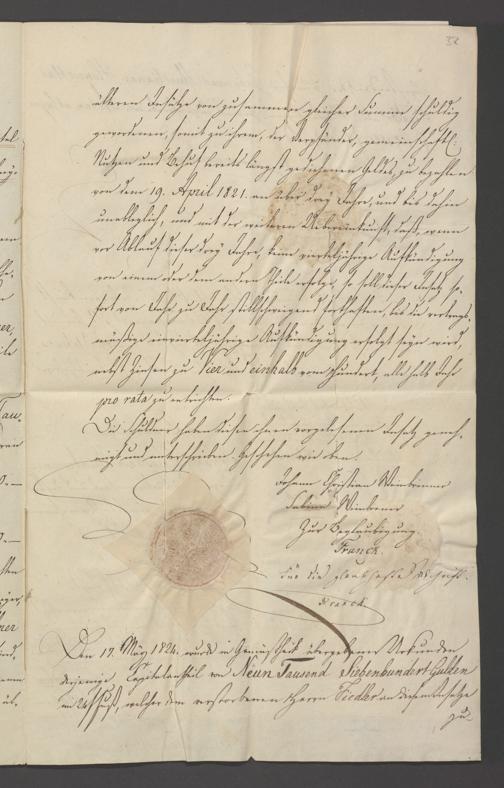 32
älteren Insätze von zusammen gleicher Summe schuldig
gewordenen, somit zu ihrem, der Verpfänder, gemeinschaftl:
Nutzen und Behuf bereits längst gediehenen Geldes, zu bezahlen
von dem 19. April 1821. an über drey Jahre, und bis dahin
unableglich, und mit der weiteren Uebereinkunft, daß, wenn
vor Ablauf dieser drey Jahre, keine vierteljährige Aufkündigung
von einem oder dem andern Theile erfolgt, so soll dieser Insatz so-
fort von Jahr zu Jahr stillschweigend fortstehen, bis die vertrags-
mäßige vierteljährige Aufkündigung erfolgt seyn wird,
nebst Zinsen zu Vier und einhalb vom Hundert, alle halb Jahr
pro rata zu entrichten.
Die Schuldner haben diesen ihnen vorgelesenen Insatz geneh-
migt und unterschrieben. Geschehen wie oben.
Johann Christian
Sabina
Zur Beglaubigung
Franck.
Für die
Franck
Den 17. März 1824. wurde in Gemäsheit übergebener Urkunden
derjenige Capitalantheil von Neun Tausend Siebenhundert Gulden
im 24 f Fuß, welcher dem verstorbenen Herrn Fiedler an diesem Insatze
zu